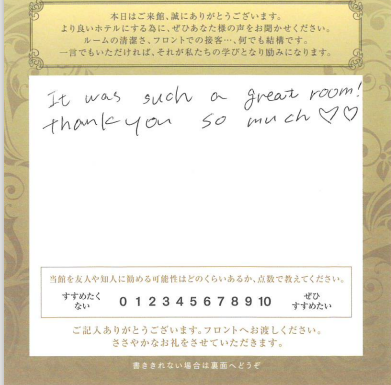 本日はご来館、誠にありがとうございます。
より良いホテルにする為に、ぜひあなた様の声をお聞かせください。
ルームの清潔さ、フロントでの接客…、何でも結構です。
一言でもいただければ、それが私たちの学びとなり励みになります。
It was such a great room!
thank you so much ♡♡
当館を友人や知人に勧める可能性はどのくらいあるか、点数で教えてください。
すすめたくない 0 1 2 3 4 5 6 7 8 9 10 ぜひすすめたい
ご記入ありがとうございます。フロントへお渡しください。
ささやかなお礼をさせていただきます。
書ききれない場合は裏面へどうぞ